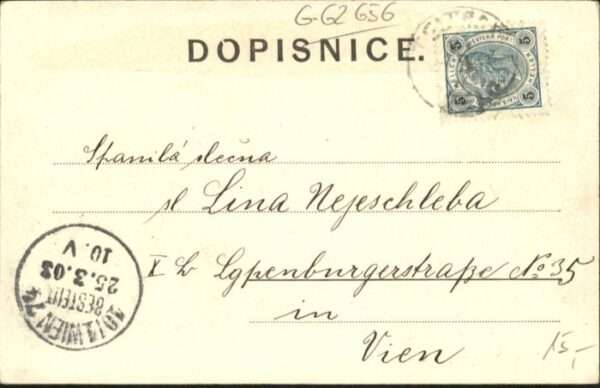 G-G2 656
DOPISNICE.
5 5
5 5
Spanilá slečna
sl Lina Nejeschleba
X b Egpenburgerstraße No 35
in
Vien
15,-
10/1 WIEN
BESTELLT
25.3.03
10.V